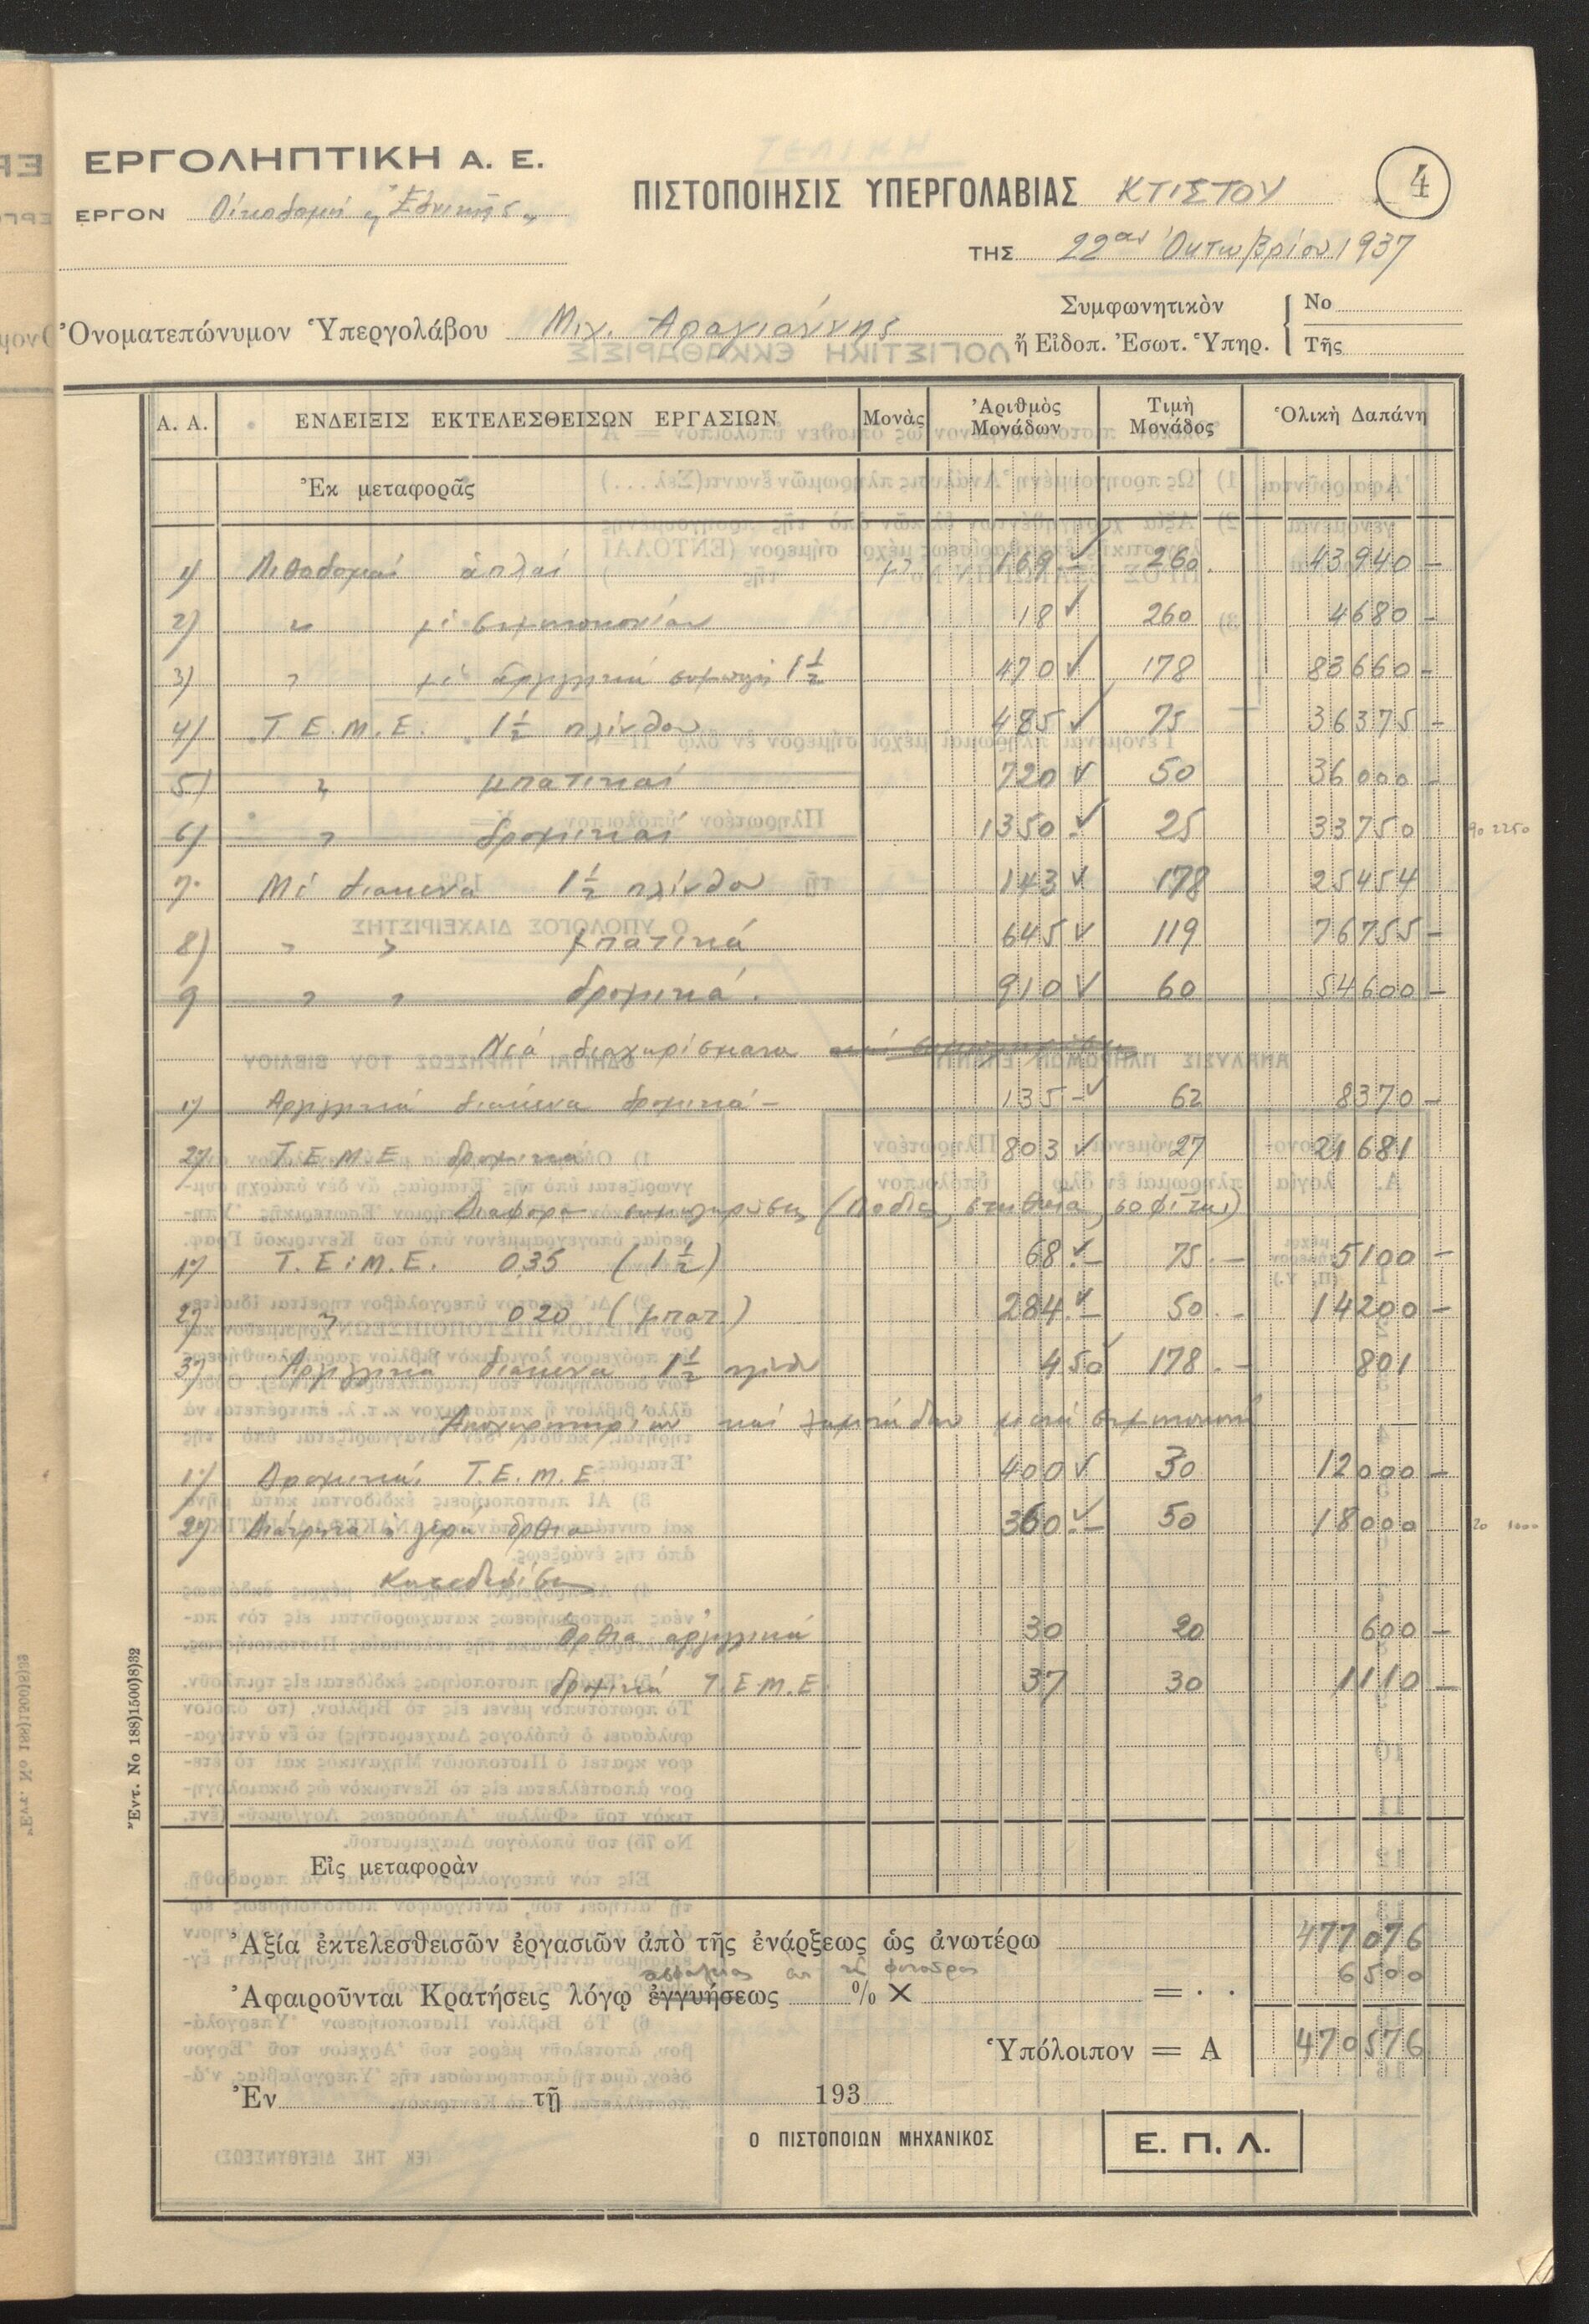 ΤΕΛΙΚΗ
ΕΡΓΟΛΗΠΤΙΚΗ Α. Ε.
ΠΙΣΤΟΠΟΙΗΣΙΣ ΥΠΕΡΓΟΛΑΒΙΑΣ ΚΤΙΣΤΟΥ 4
ΕΡΓΟΝ Οἰκοδομή „Ἐθνικῆς„
ΤΗΣ 22αν Ὀκτωβρίου 1937
Ὀνοματεπώνυμον Ὑπεργολάβου Μιχ. Αραγιάννης
Συμφωνητικὸν ἢ Εἰδοπ. Ἐσωτ. Ὑπηρ. Νο Τῆς
Α. Α. ΕΝΔΕΙΞΙΣ ΕΚΤΕΛΕΣΘΕΙΣΩΝ ΕΡΓΑΣΙΩΝ Μονὰς Ἀριθμὸς Μονάδων Τιμὴ Μονάδος Ὁλικὴ Δαπάνη
Ἐκ μεταφορᾶς
1) Λιθοδομαί ἁπλαί μ³ 169.- 260. 43940 -
2) „ μέ τσιμεντοκονίαν 18 260 4680 -
3) „ μέ ἀργιλλικά συμπαγῆ 1½ 470 178 83660 -
4) Τ.Ε.Μ.Ε. 1½ πλίνθου 485 75 36375 -
5) „ μπατικαί 720 50 36000 -
6) „ δρομικαί 1350.- 25 33750 90 2250
7. Μέ διακενα 1½ πλίνθου 143 178 25454
8) „ „ μπατικά 645 119 76755 -
9 „ „ δρομικά. 910 60 54600 -
Νέα διαχωρίσματα
1) Αργιλλικά διακενα δρομικά - 135 - 62 8370 -
2) Τ.Ε.Μ.Ε. δρομικά 803 27 21681
Διάφοροι συμπληρώσεις (Ποδιές, στηθαῖα, σοφίται)
1) Τ.Ε.Μ.Ε. 0.35 (1½) 68.- 75.- 5100 -
2) „ 0.20 (μπατ.) 284.- 50.- 14200 -
3) Αργιλλικά διακενα 1½ πλίνθ 4 50 178.- 801
1) Δρομικαί Τ.Ε.Μ.Ε. 400 30 12000 -
2) Διάτρητα ὄρθια 360.- 50 18000 20 1000
Κατεδαφίσεις
ὄρθια αργιλλικά 30 20 600 -
δρομικά Τ.Ε.Μ.Ε. 37 30 1110 -
Εἰς μεταφορὰν
Ἀξία ἐκτελεσθεισῶν ἐργασιῶν ἀπὸ τῆς ἐνάρξεως ὡς ἀνωτέρω 477076
Ἀφαιροῦνται Κρατήσεις λόγῳ ἐγγυήσεως % × = . . 6500
Ὑπόλοιπον = Α 470576
Ἐν τῇ 193
Ο ΠΙΣΤΟΠΟΙΩΝ ΜΗΧΑΝΙΚΟΣ
Ε. Π. Λ.
Ἔντ. Νο 188)1500)8)32